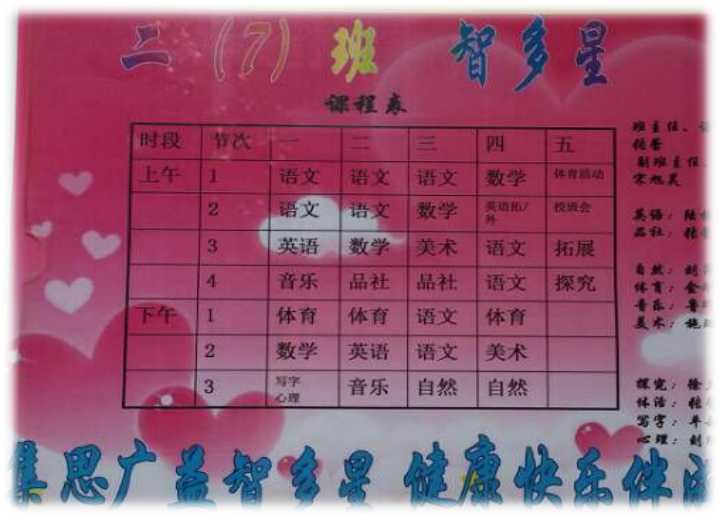 二(7)班 智多星
课程表
时段 节次 一 二 三 四 五
上午 1 语文 语文 语文 数学 体育活动
2 语文 语文 数学 英语拓/外 校班会
3 英语 数学 美术 语文 拓展
4 音乐 品社 品社 语文 探究
下午 1 体育 体育 语文 体育
2 数学 英语 语文 美术
3 写字 心理 音乐 自然 自然
班主任、
副班主任、
宋旭昊
英语:陆
品社:
自然:
体育:金
音乐:
美术:施
探究:徐
体活:
写字:
心理:
集思广益智多星 健康快乐伴